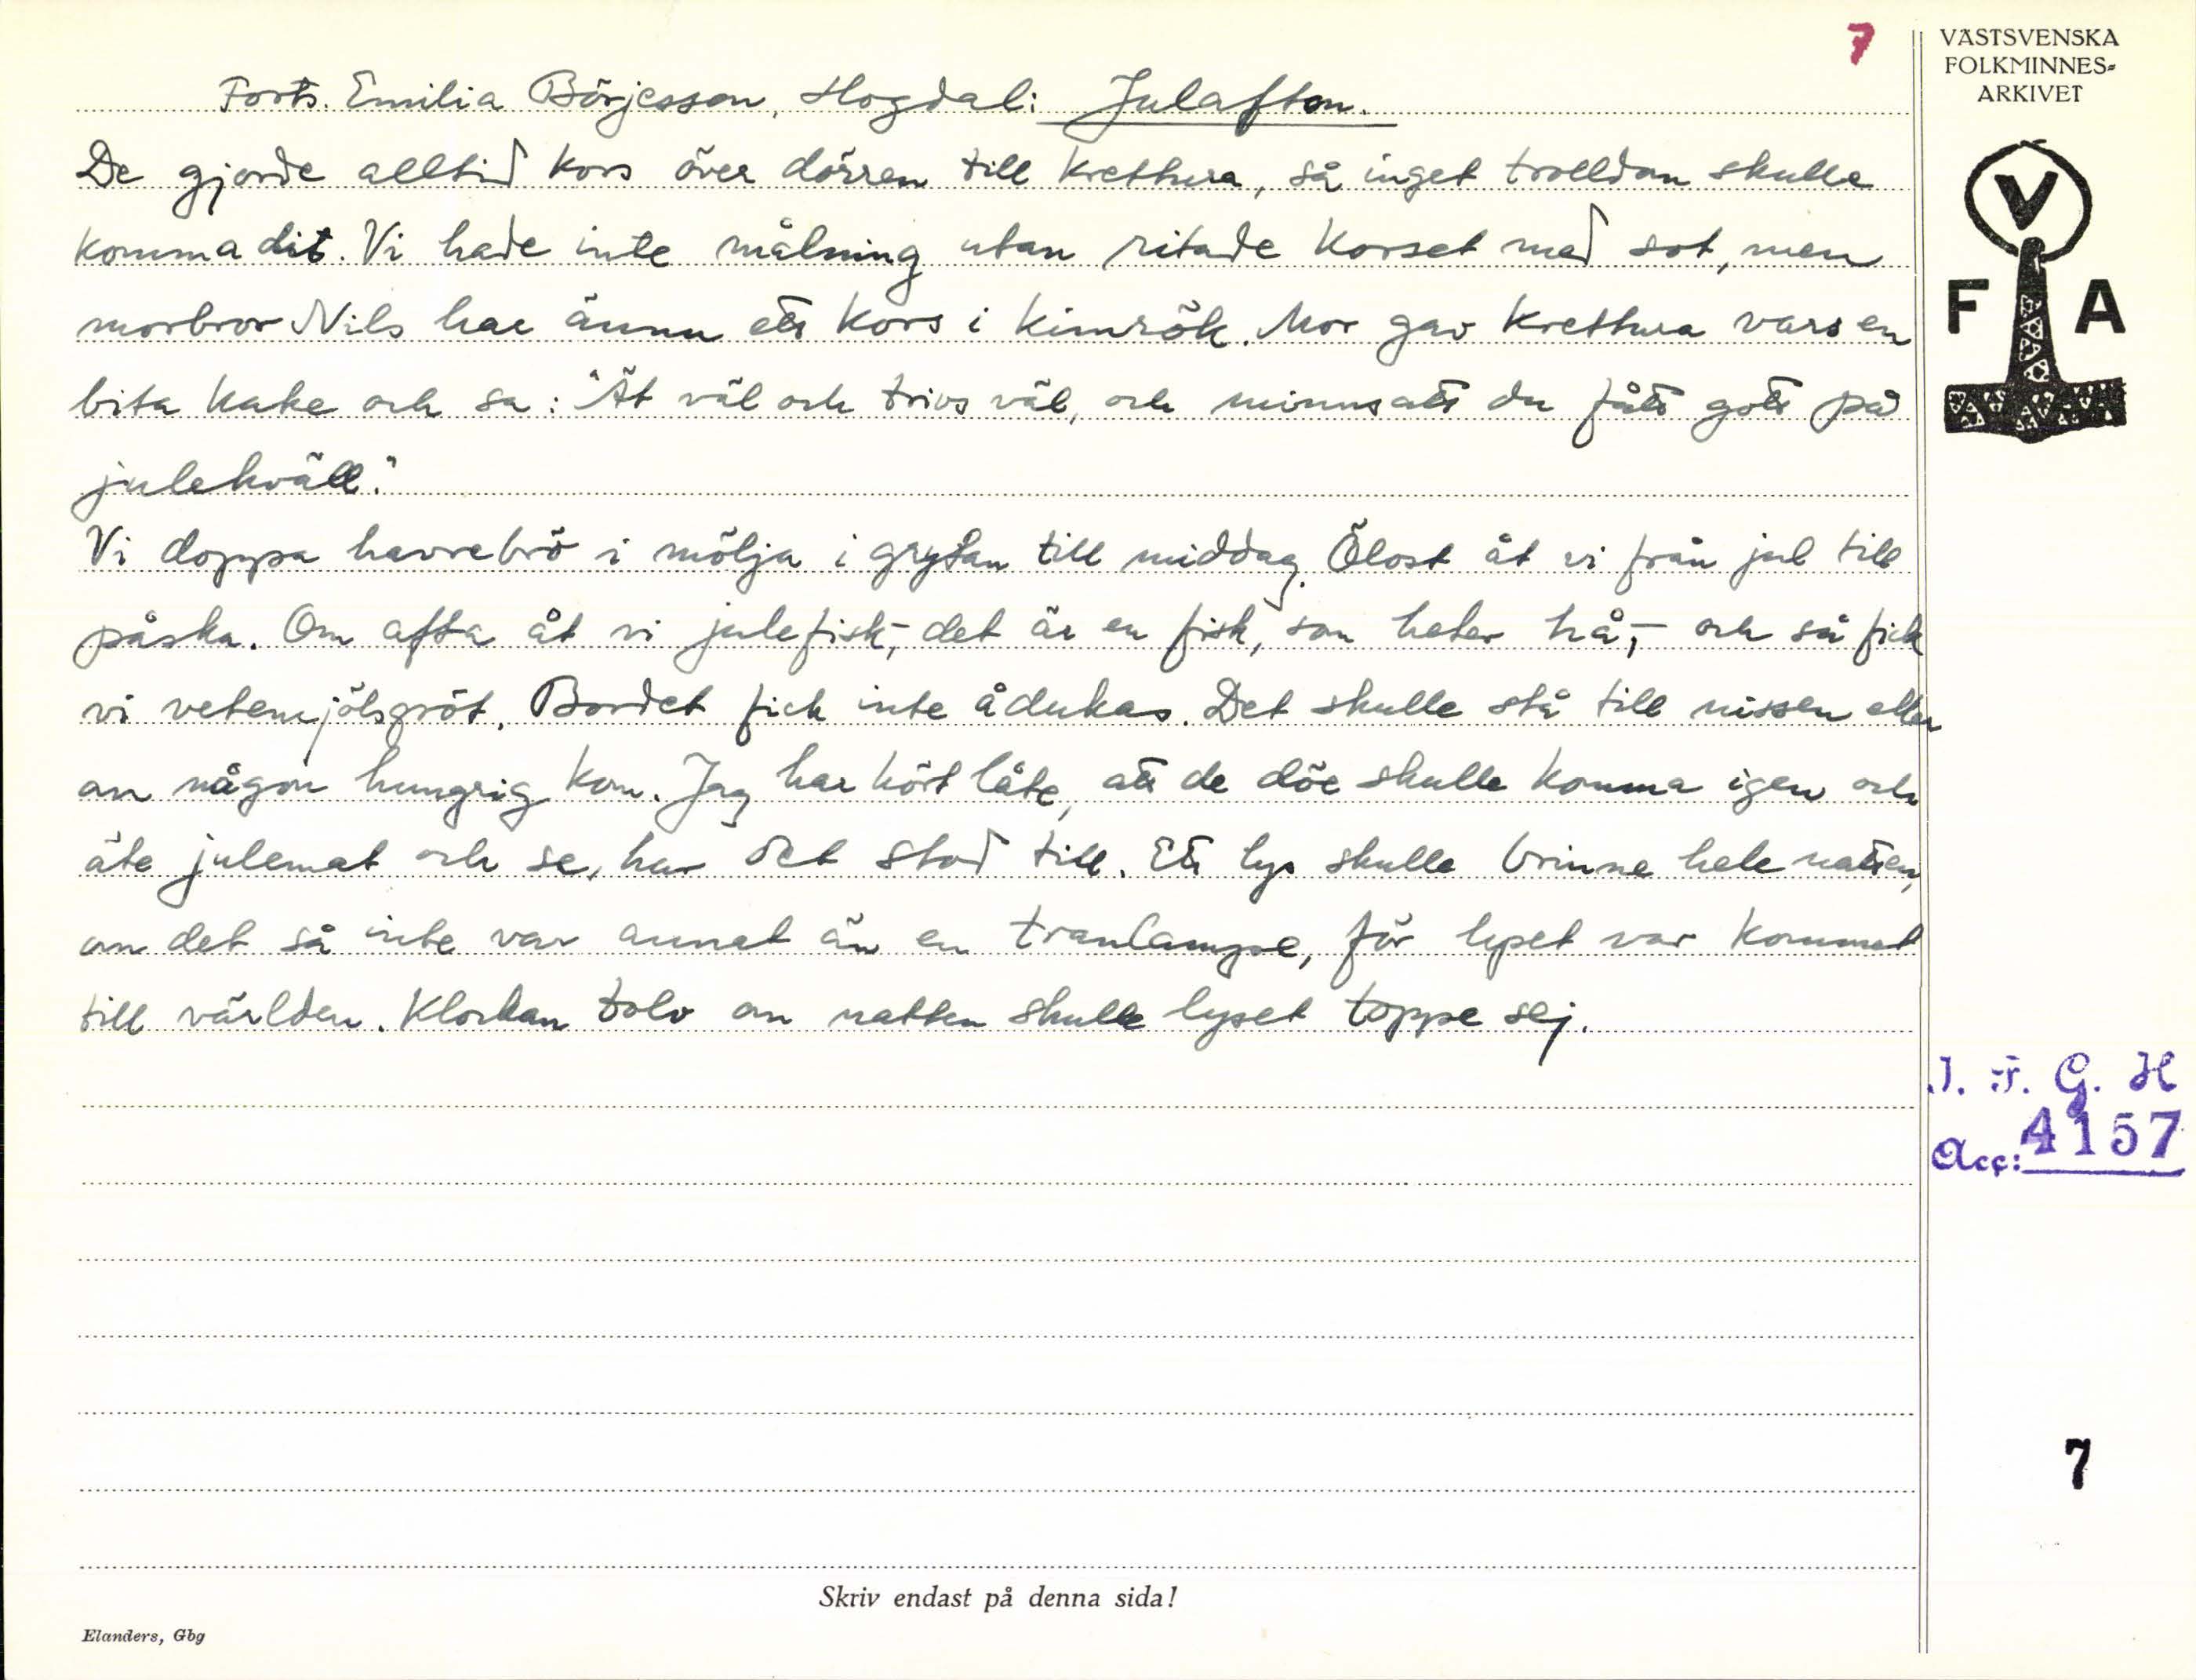 7
VÄSTSVENSKA
FOLKMINNES-
ARKIVET
V
F A
Forts. Emilia Börjesson, Hogdal: Julafton.
De gjorde alltid kors över dörren till krettura, så inget trolldom skulle
komma dit. Vi hade inte målning utan ritade korset med sot, men
morbror Nils har ännu ett kors i kimrök. Mor gav krettura vars en
bita kake och sa: "Ät väl och trivs väl, och minns att du fått gott på
julekväll."
Vi doppa havrebrö i mölja i grytan till middag. Ölost åt vi från jul till
påska. Om afta åt vi julefisk, - det är en fisk, som heter hå, - och så fick
vi vetemjölsgröt. Bordet fick inte ådukas. Det skulle stå till nissen eller
om någon hungrig kom. Jag har hört låte, att de döe skulle komma igen och
äte julemat och se, hur det stod till. Ett lys skulle brinne hele natten,
om det så inte var annat än en tranlampe, för lyset var kommet
till världen. Klockan tolv om natten skulle lyset toppe sej.
I. F. G. H
Acc: 4157
7
Skriv endast på denna sida!
Elanders, Gbg